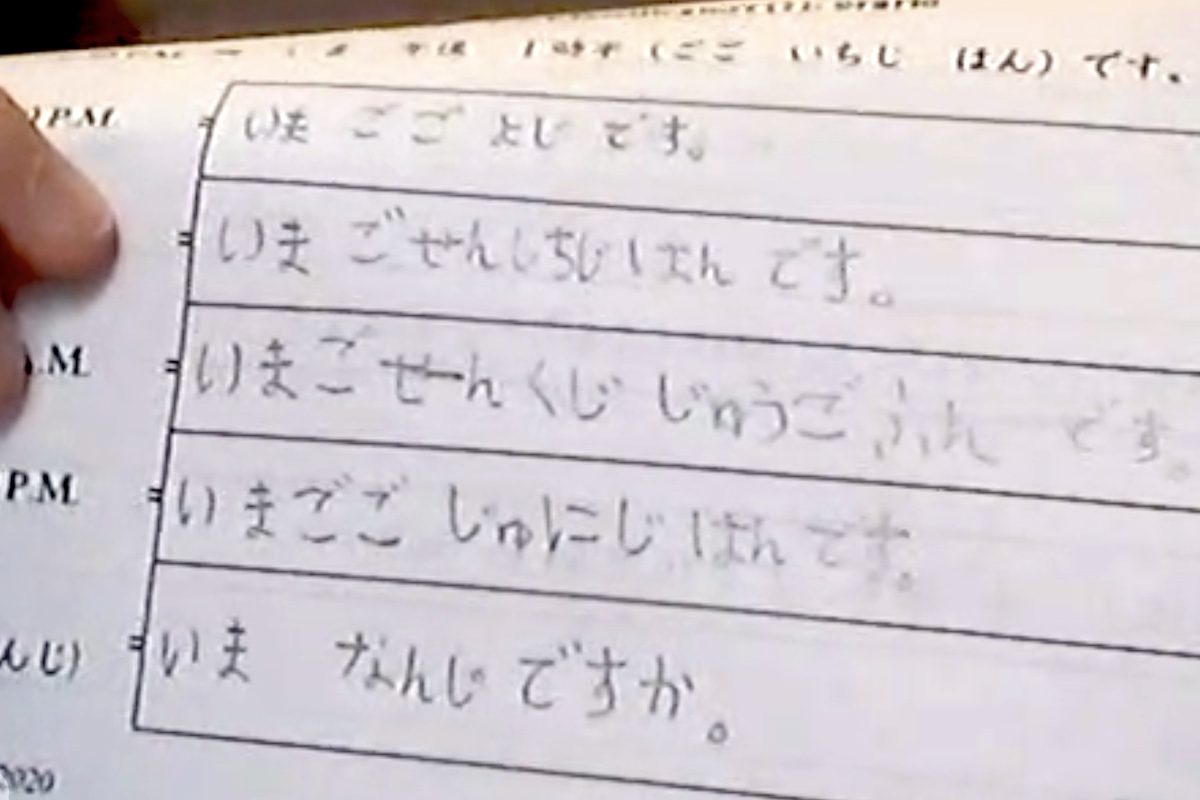 午後 1時半 (ごご いちじ はん) です。
P.M.
いま ごご よじ です。
いま ごぜんしちじはん です。
.M.
いまごぜんくじ じゅうごふん です。
P.M.
いまごご じゅにじ はんです。
んじ)
いま なんじ ですか。
2020